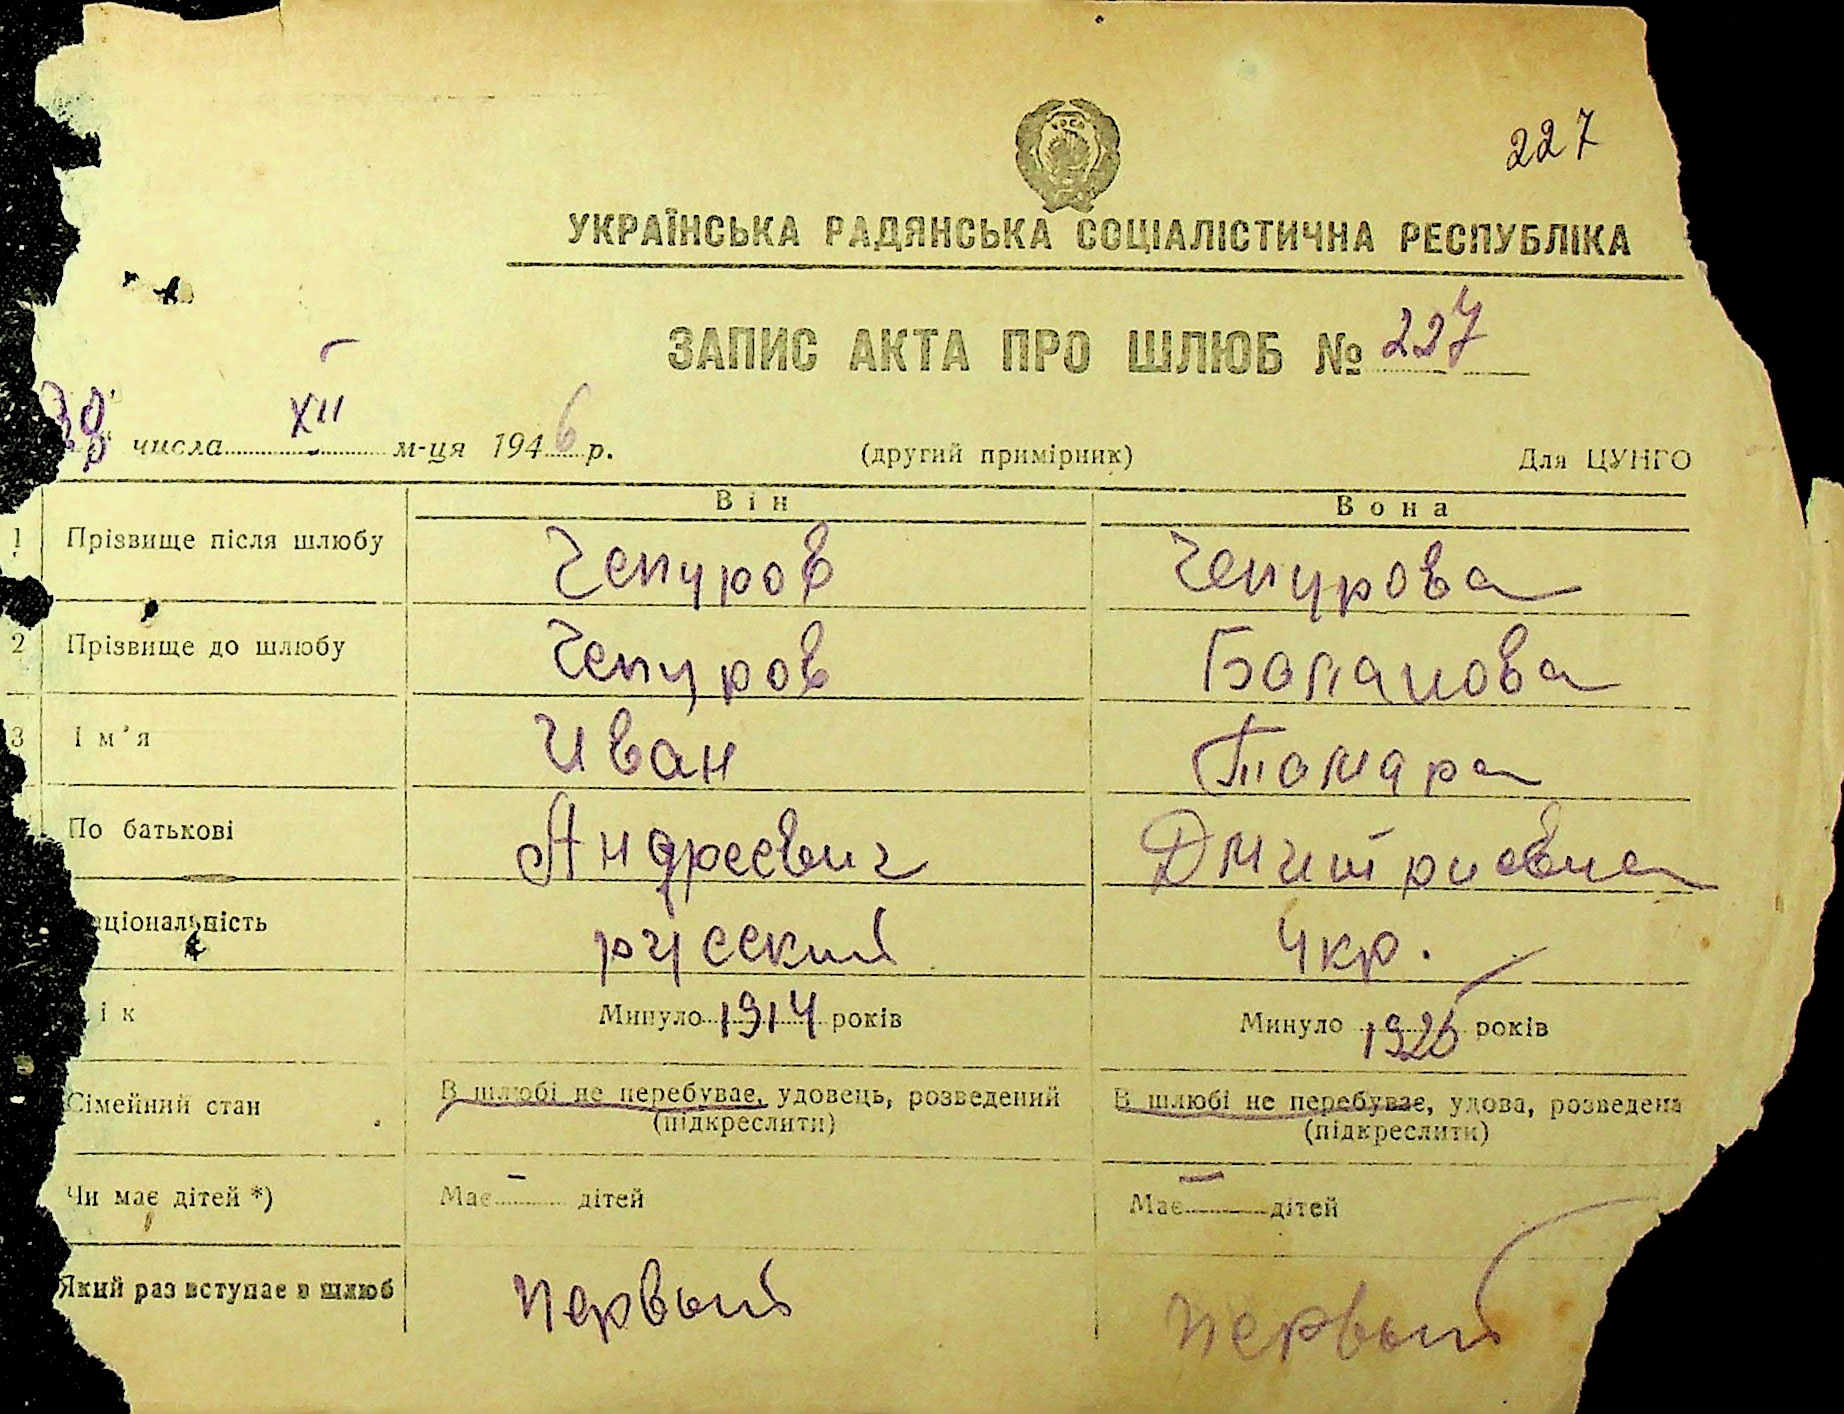 227
УКРАЇНСЬКА РАДЯНСЬКА СОЦІАЛІСТИЧНА РЕСПУБЛІКА
ЗАПИС АКТА ПРО ШЛЮБ № 227
числа XII м-ця 1946 р. (другий примірник) Для ЦУНГО
Він Вона
1 Прізвище після шлюбу Чепуров Чепурова
2 Прізвище до шлюбу Чепуров
3 Ім'я Иван Тамара
По батькові Андреевич Дмитриевна
аціональність русский укр.
ік Минуло 1914 років Минуло 1926 років
Сімейний стан В шлюбі не перебуває, удовець, розведений В шлюбі не перебуває, удова, розведена
(підкреслити) (підкреслити)
Чи має дітей *) Має — дітей Має — дітей
Який раз вступає в шлюб первый первый